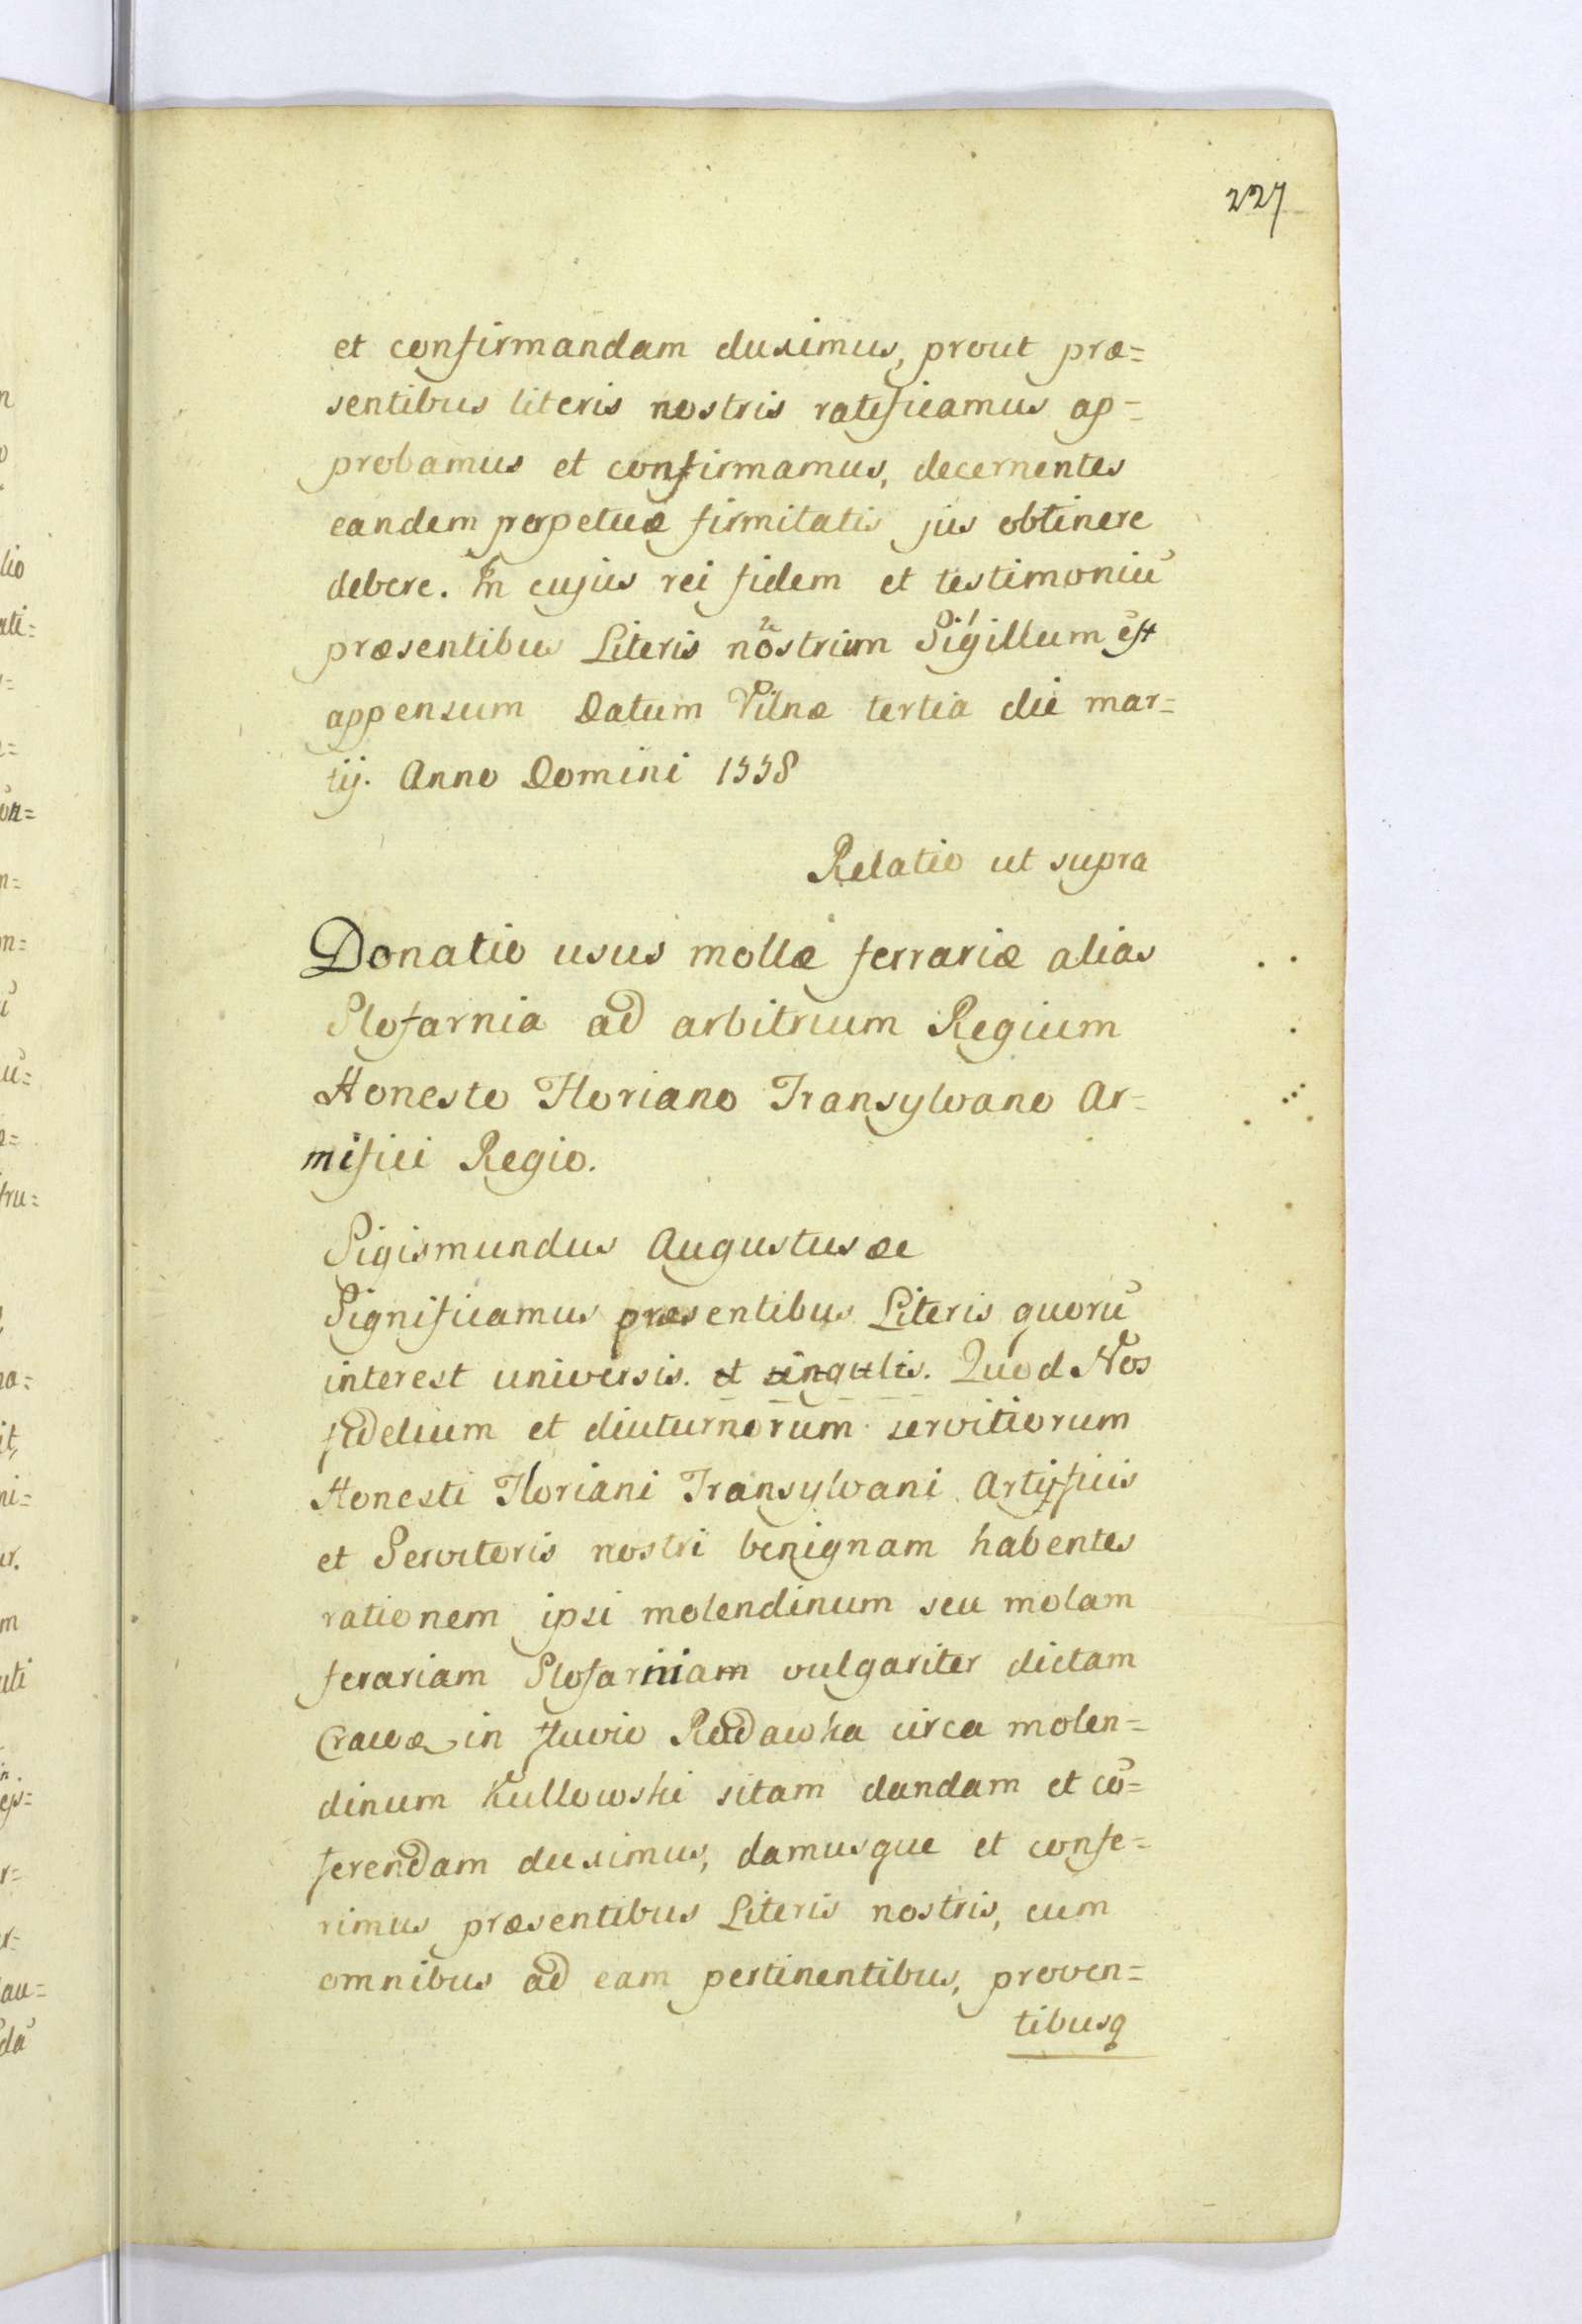 227
et confirmandam duximus, prout præ=
sentibus literis nostris ratificamus ap=
probamus et confirmamus, decernentes
eandem perpetuæ firmitatis jus obtinere
debere. In cujus rei fidem et testimoniū
præsentibus Literis nostrum Sigillum est
appensum Datum Vilnæ tertia die mar=
tij. Anno Domini 1558
Relatio ut supra
Donatio usus mollæ ferrariæ alias
Slofarnia ad arbitrium Regium
Honesto Floriano Transylvano Ar=
mifici Regio.
Sigismundus Augustus &c
Significamus præsentibus Literis quorū
interest universis. et singulis. Quod Nos
fidelium et diuturnorum servitiorum
Honesti Floriani Transylvani Artificis
et Servitoris nostri benignam habentes
rationem ipsi molendinum seu molam
ferariam Slofarniam vulgariter dictam
Cracovæ in fluvio Rudawka circa molen=
dinum Kullowski sitam dandam et cō=
ferendam duximus, damusque et confe=
rimus præsentibus Literis nostris, cum
omnibus ad eam pertinentibus, proven=
tibusq
lio
ati=
on=
tru=
it,
ni=
m
uti
au=
dā